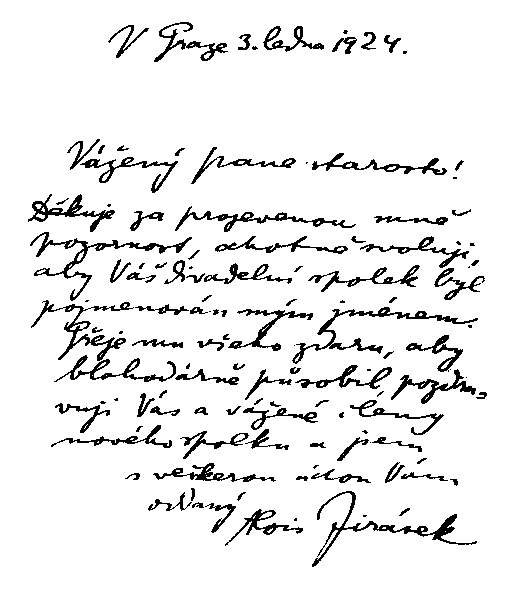 V Praze 3. ledna 1924.
Vážený pane starosto!
Děkuje za projevenou mně
pozornost, ochotně svoluji,
aby Váš divadelní spolek byl
pojmenován mým jménem.
Přeje mu všeho zdaru, aby
blahodárně působil, pozdra-
vuji Vás a vážené členy
nového spolku a jsem
s veškerou úctou Vám
oddaný
Alois Jirásek